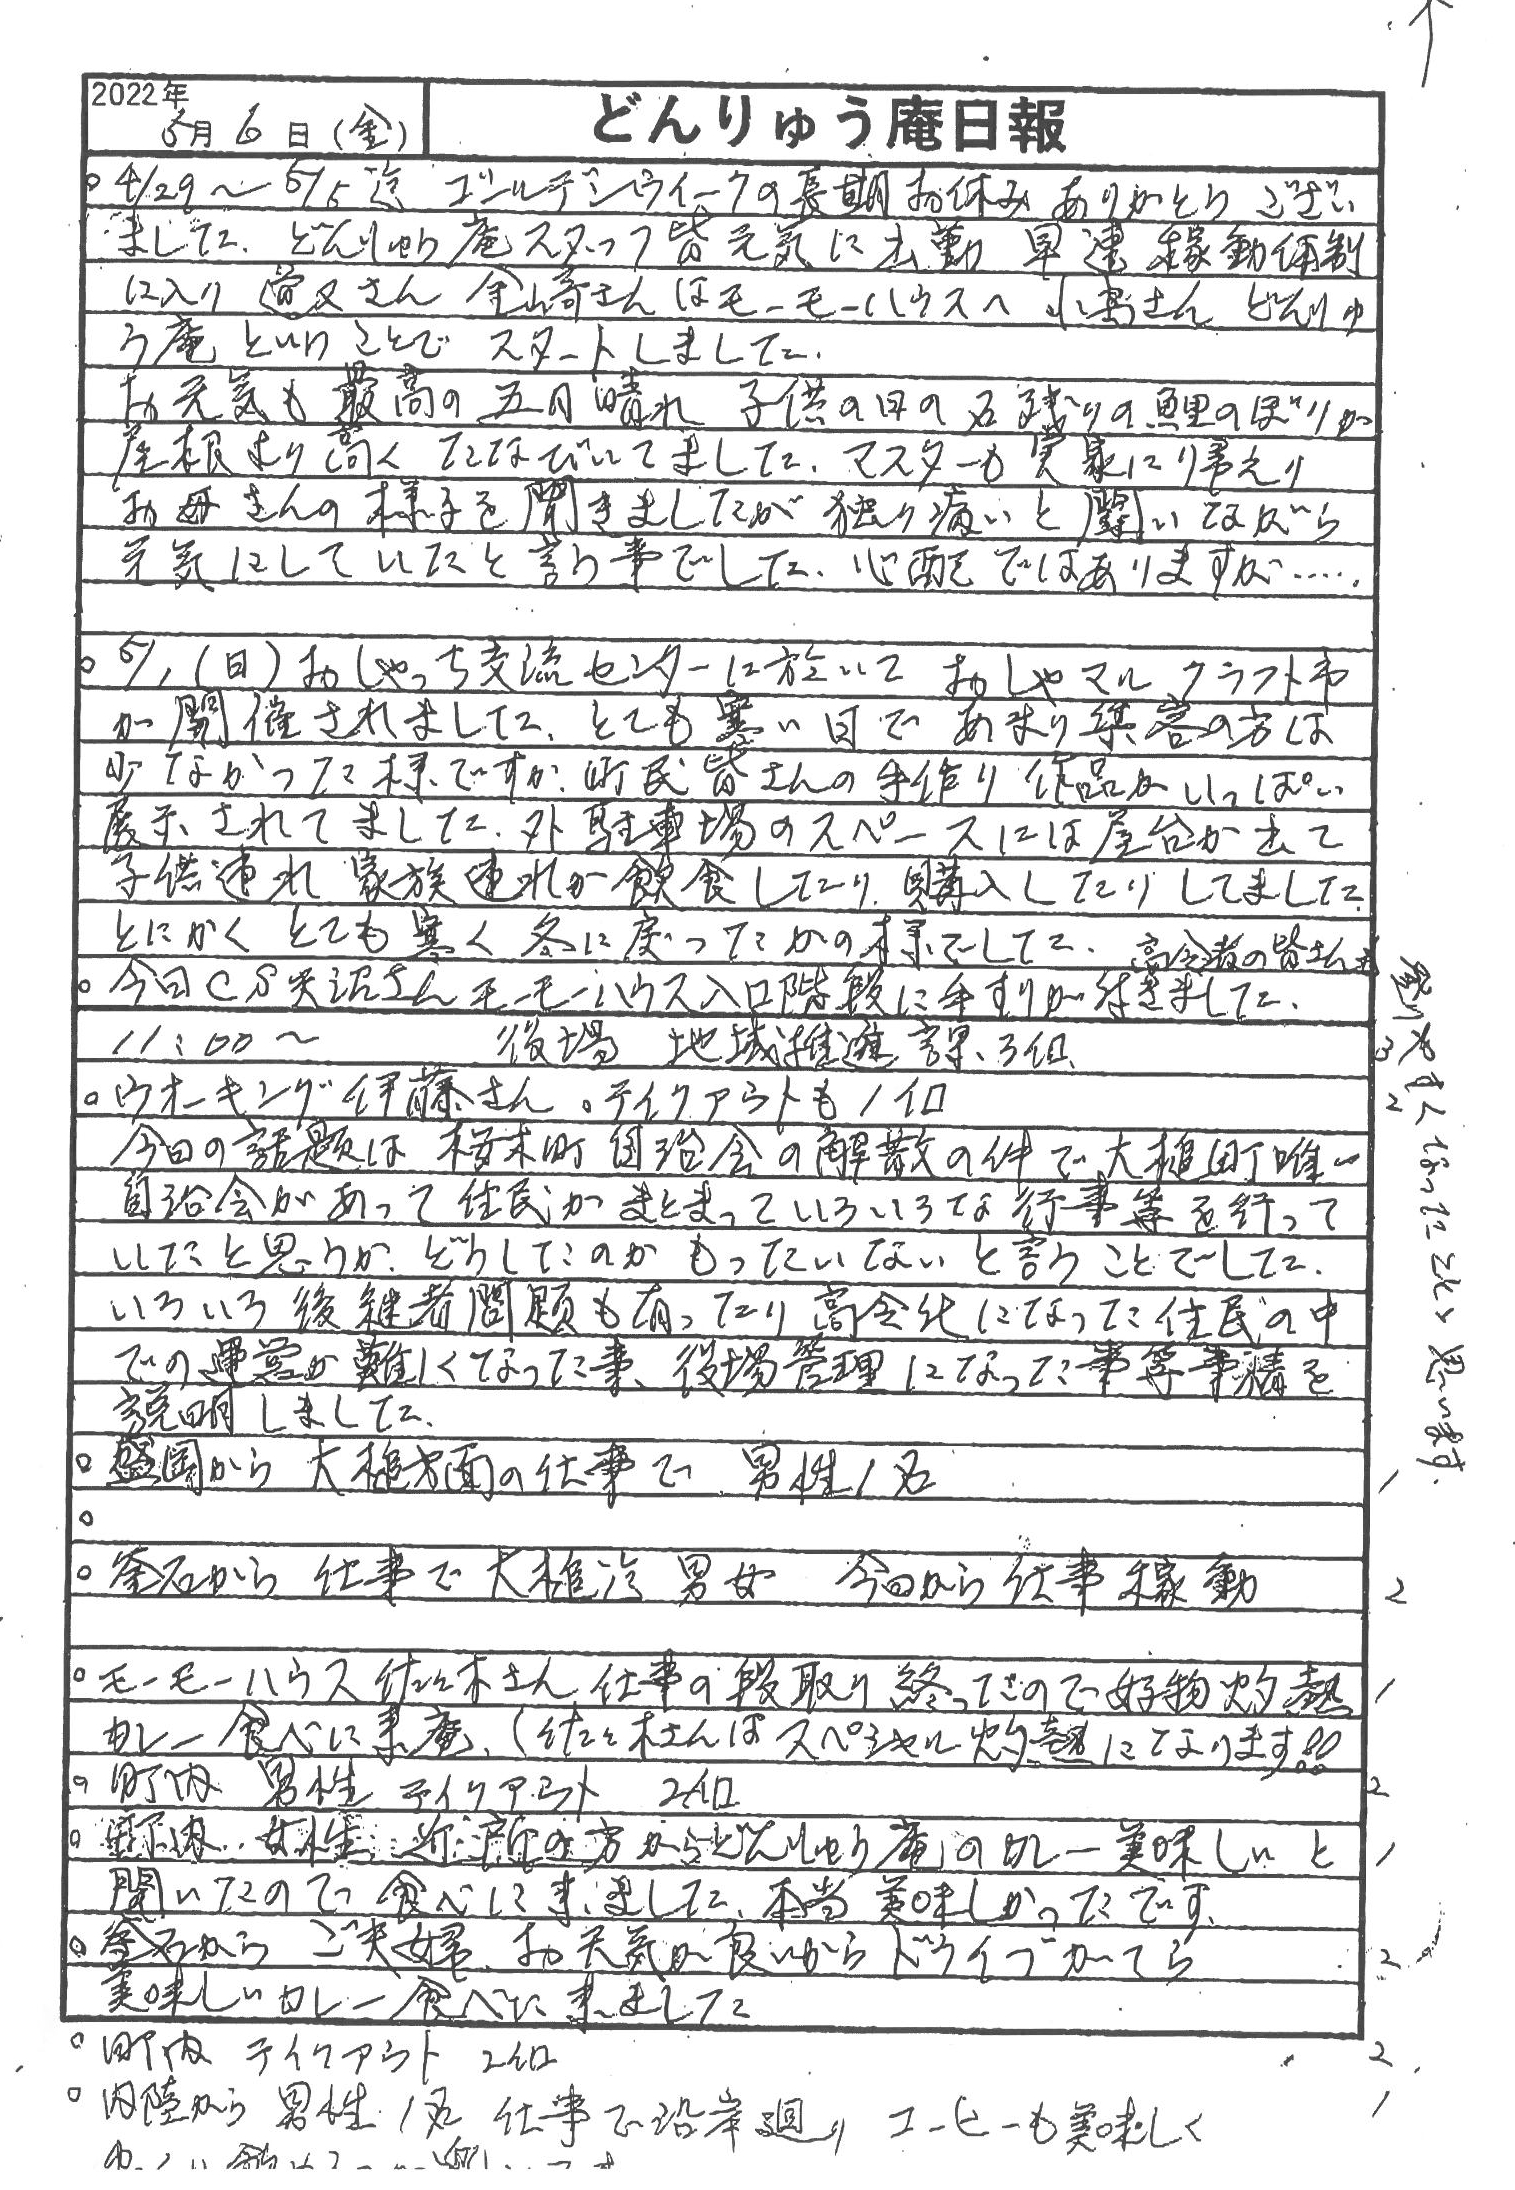 2022年
5月6日(金)
どんりゅう庵日報
○4/29〜5/5迄 ゴールデンウィークの長期お休みありがとうござい
ました、どんりゅう庵スタッフ皆元気に出勤 早速稼動体制
に入り さん 金崎さんはモーモーハウスへ 小 さん どんりゅ
う庵ということでスタートしました、
お天気も最高の五月晴れ 子供の日の名残りの鯉のぼりが
屋根より高くたなびいてました、マスターも実家に帰えり
お母さんの様子を聞きましたが独り病いと闘いながら
元気にしていたと言う事でした、心配ではありますが……
○5/1(日)おしゃっち交流センターに於いて おしゃマルクラフト市
が開催されました、とても寒い日で あまり集客の方は
少なかった様ですが、町民皆さんの手作り作品がいっぱい
展示されてました、外駐車場のスペースには屋台が出て
子供連れ 家族連れが飲食したり、購入したりしてました、
とにかく とても寒く冬に戻ったかの様でした、
高令者の皆さんも
登りやすくなったことと思います。
○今日CS矢沼さんモーモーハウス入口階段に手すりが付きました、
11:00〜 役場 地域推進課、3ケ 3
○ウオーキング伊藤さん ○テイクアウトも1ケ 2
今日の話題は 桜木町自治会の解散の件で大槌町唯一
自治会があって住民がまとまっていろいろな行事等を行って
いたと思うが、どうしたのか もったいないと言うことでした、
いろいろ後継者問題も有ったり高令化になった住民の中
での運営が難しくなった事、役場管理になった事等事情を
説明しました、
○盛岡から 大槌方面の仕事で 男性1名 1
○
○釜石から 仕事で大槌迄 男女 今日から仕事稼動 2
○モーモーハウス佐々木さん仕事の段取り終ったので好物灼熱 1
カレー食べに来庵、(佐々木さんはスペシャル灼熱になります!!
○町内 男性 テイクアウト 2ケ 2
○町内 女性 近所の方からどんりゅう庵のカレー美味しいと 1
聞いたので食べに来ました、本当美味しかったです、
○釜石から ご夫婦、お天気が良いからドライブがてら 2
美味しいカレー食べに来ました
○町内 テイクアウト 2ケ 2
○内陸から 男性1名 仕事で沿岸廻り コーヒーも美味しく 1